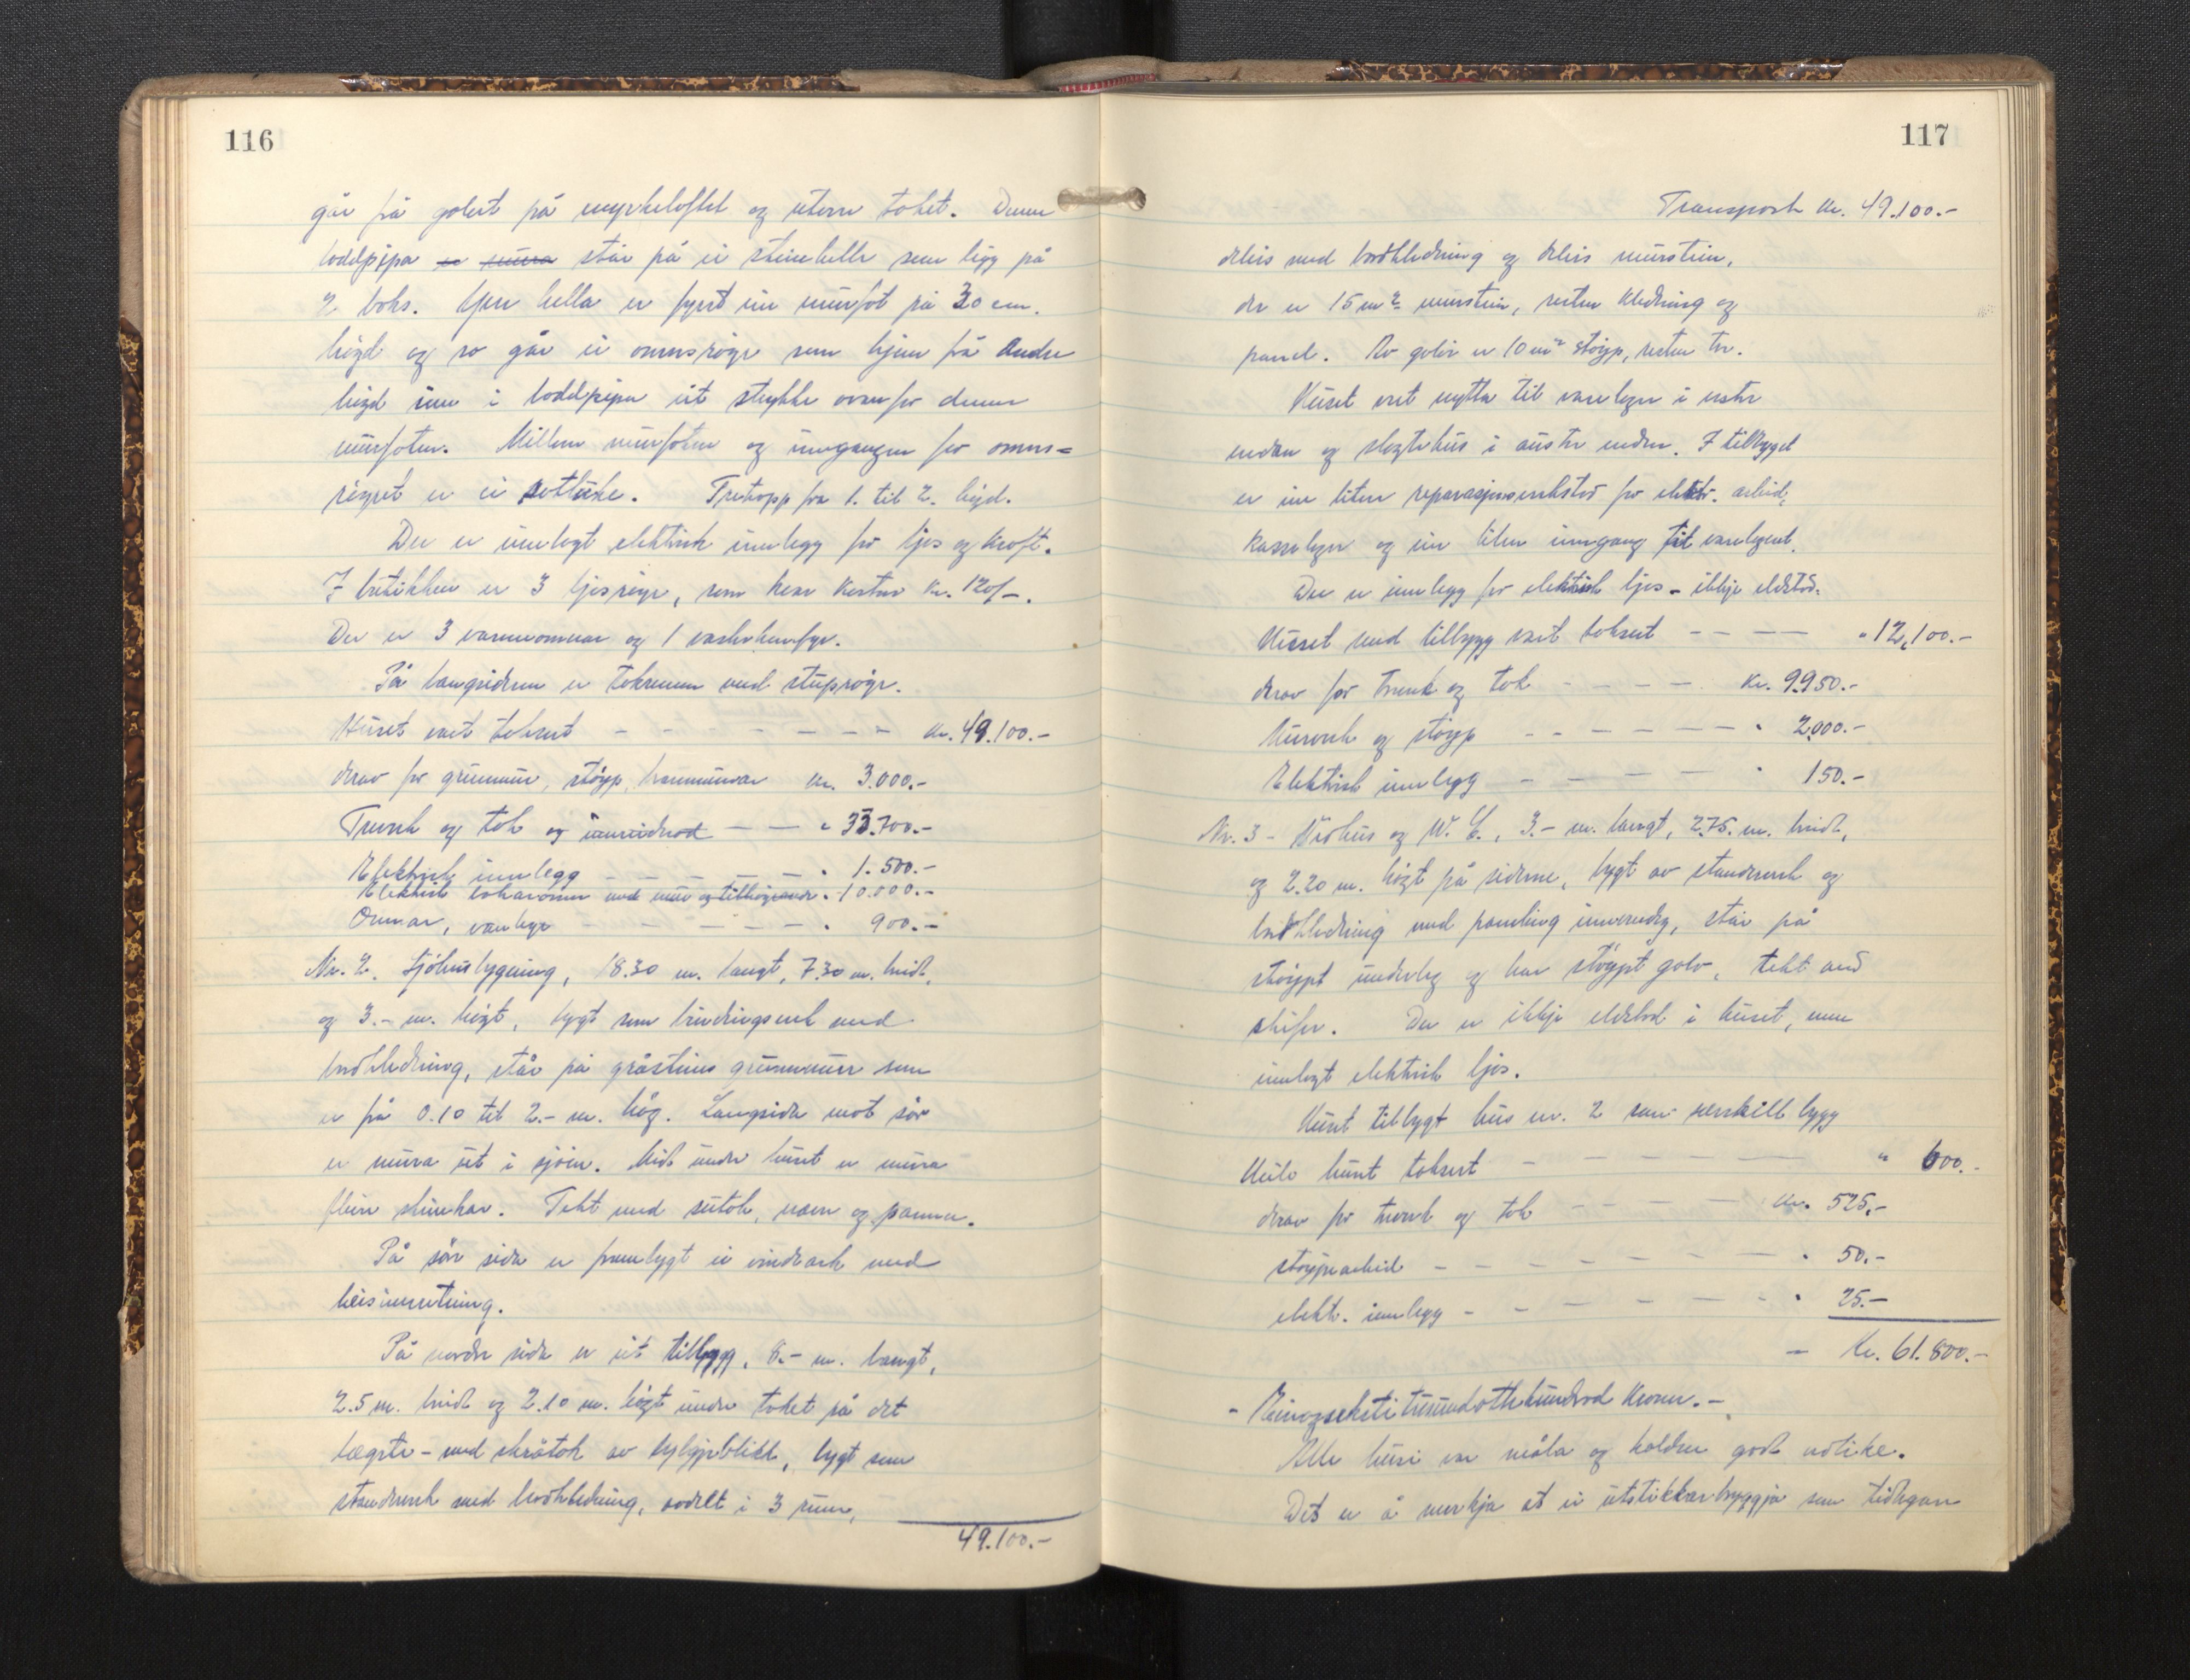 116
går frå golvet på myrkeloftet og utover taket. Denne
loddpipa er mura står på ei steinhelle som ligg på
2 boks. Yver hella er fyrst ein murfot på 30 cm.
høgd og so går ei omnsrøyr som kjem frå andre
høgd inn i loddpipa eit stykke ovanfor denne
murfoten. Millom murfoten og inngangen for omns=
røyret er ei sotluke. Tretropp fra 1. til 2. høgd.
Der er innlagt elektrisk innlegg for ljos og kraft.
I butikken er 3 ljosrøyr, som kvar kostar kr. 120/-.
Der er 3 varmeomnar og 1 vaskekumfyr.
På langsidene er takrenner med stuprøyr.
Huset vart taksert - - - - - - - kr. 49.100.-
derav for grunnmur, støyp, brannmurar kr. 3.000.-
Treverk og tak og innreidnad - - - " 33.700.-
Elektrisk innlegg - - - - - " 1.500.-
Elektrisk bakaromn med mur og tilhøyrande " 10.000.-
Omnar, vanlege - - - - - - " 900.-
Nr. 2. Sjøhusbygning, 18.30 m. langt, 7.30 m. breidt,
og 3.- m. høgt, bygt som bindingsverk med
bordkledning, står på gråsteins grunnmur som
er frå 0.10 til 2.- m. høg. Langsida mot sør
er mura ut i sjøen. Midt under huset er mura
fleire steinkar. Tekt med sutak, næver og panner.
På sør sida er frambygt ei vindeark med
heisinnretning.
På nordre sida er eit tilbygg, 8.- m. langt,
2.5 m. breidt og 2.10 m. høgt under taket på det
lægste - med skråtak av bylgjeblikk, bygt som
standverk med bordkledning, avdelt i 3 rum,
49.100.-
117
Transport kr. 49.100.-
delvis med bordkledning og delvis murstein,
der er 15 m² murstein, resten kledning og
panel. Av golv er 10 m² støyp, resten tre.
Huset vert nytta til varelager i vestre
enden og slagtehus i austre enden. I tilbygget
er ein liten reparasjonsverkstad for elektr. arbeid,
kasselager og ein liten inngang til varelageret.
Der er innlegg for elektrisk ljos - ikkje eldstad.
Huset med tilbygg vart taksert - - - - " 12,100.-
derav for treverk og tak - - - - kr. 9.950.-
Murverk og støyp - - - - - - " 2.000.-
Elektrisk innlegg - - - - - " 150.-
Nr. 3 - Vedhus og W. C., 3.- m. langt, 2.75. m. breidt,
og 2.20 m. høgt på sidene, bygt av standverk og
bordkledning med paneling innvendig, står på
støypt underlag og har støypt golv, tekt med
skifer. Der er ikkje eldstad i huset, men
innlagt elektrisk ljos.
Huset tilbygt hus nr. 2 som serskilt bygg
Heile huset taksert - - - - - - " 600.-
derav for treverk og tak - - - - kr. 525.-
støypearbeid - - - - - - - " 50.-
elektr. innlegg - - - - - - - " 25.-
- kr. 61.800.-
- Einogsekstitusundottehundrad kroner. -
Alle husi var måla og haldne godt vedlike.
Det er å merkja at ei utstikkarbryggja som tidlegare